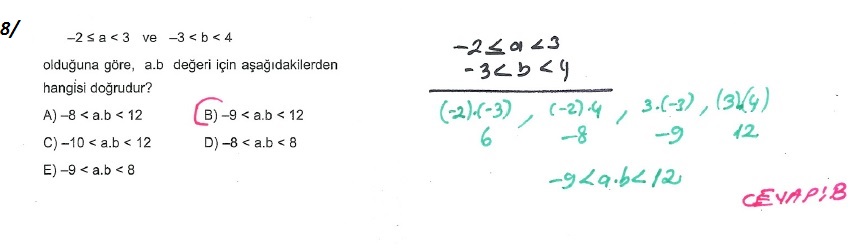 8/
–2 ≤ a < 3 ve –3 < b < 4
olduğuna göre, a.b değeri için aşağıdakilerden
hangisi doğrudur?
A) –8 < a.b < 12 B) –9 < a.b < 12
C) –10 < a.b < 12 D) –8 < a.b < 8
E) –9 < a.b < 8
-2 ≤ a < 3
-3 < b < 4
(-2).(-3) , (-2).4 , 3.(-3) , (3).(4)
6 -8 -9 12
-9 < a.b < 12
CEVAP: B